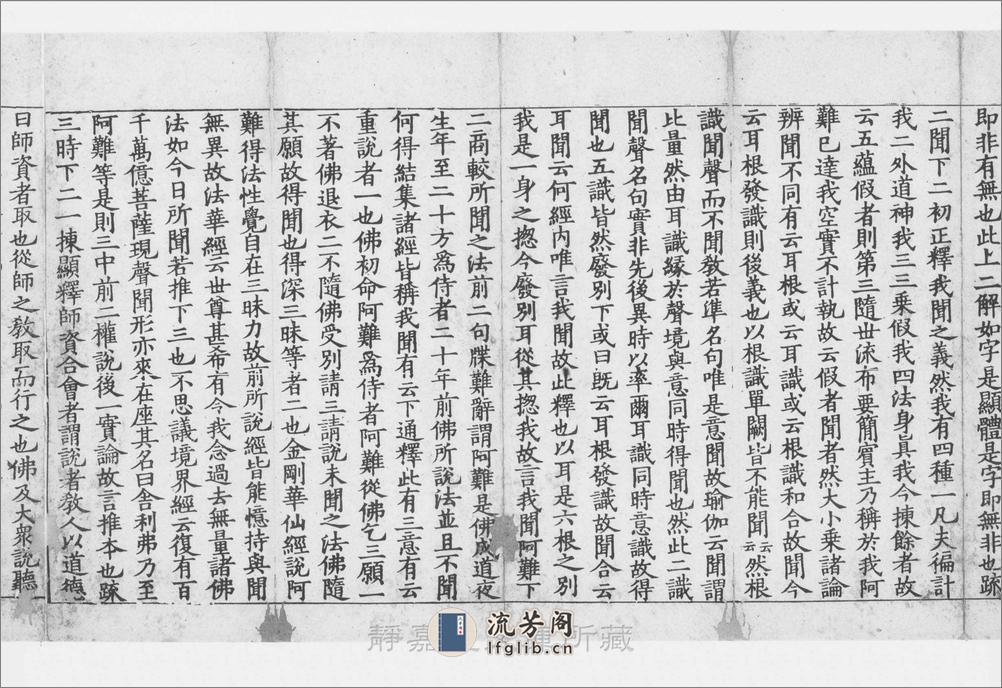 即非有無也此上二解如字是顯體是字即無非也䟽
二聞下二初正釋我聞之義然我有四種一凡夫徧計
我二外道神我三三乗假我四法身真我今揀餘者故
云五蘊假者則第三隨世流布要簡賔主乃稱於我阿
難已達我空實不計執故云假者聞者然大小乗諸論
辨聞不同有云耳根或云耳識或云根識和合故聞今
云耳根發識則後義也以根識單闕皆不能聞云云然根
識聞聲而不聞教若準名句唯是意聞故瑜伽云聞謂
比量然由耳識縁於聲境與意同時得聞也然此二識
聞聲名句實非先後異時以率爾耳識同時意識故得
聞也五識皆然廢别下或曰既云耳根發識故聞合云
耳聞云何經内唯言我聞故此釋也以耳是六根之别
我是一身之揔今廢别耳從其揔我故言我聞阿難下
二商較所聞之法前二句牒難辭謂阿難是佛成道夜
生年至二十方為侍者二十年前佛所說法並且不聞
何得結集諸經皆稱我聞有云下通釋此有三意有云
重說者一也佛初命阿難為侍者阿難從佛乞三願一
不著佛退衣二不隨佛受别請三請說未聞之法佛隨
其願故得聞也得深三昧等者二也金剛華仙經說阿
難得法性覺自在三昧力故前所說經皆能憶持與聞
無異故法華經云世尊甚希有令我念過去無量諸佛
法如今日所聞若推下三也不思議境界經云復有百
千萬億菩薩現聲聞形亦來在座其名曰舍利弗乃至
阿難等是則三中前二權說後一實論故言推本也䟽
三時下二一揀顯釋師資合會者謂說者教人以道德
曰師資者取也從師之教取而行之也佛及大衆說聽
静嘉堂文庫所藏
流芳阁
lfglib.cn